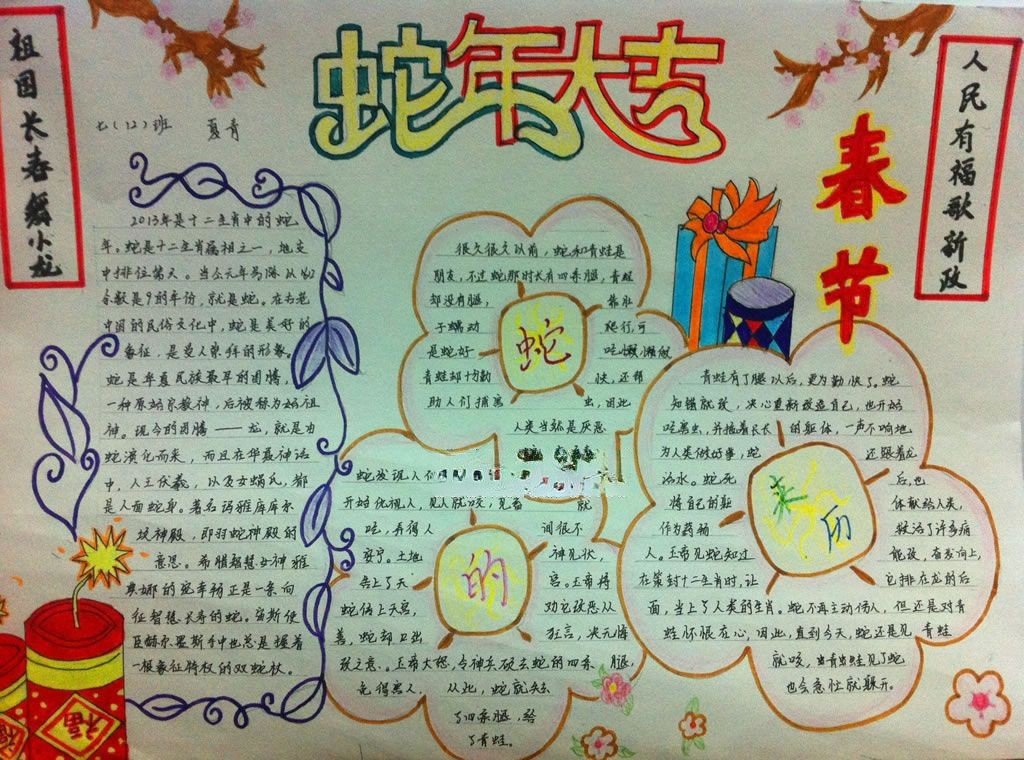 祖国长春舞小龙
七(12)班 夏青
蛇年大吉
春节
人民有福歌新政
2013年是十二生肖中的蛇
年。蛇是十二生肖属相之一，地支
中排位第六。当公元年号除以12
余数是9的年份，就是蛇。在古老
中国的民俗文化中，蛇是美好的
象征，是受人崇拜的形象。
蛇是华夏民族最早的图腾，
一种原始宗教神，后被称为始祖
神。现今的图腾——龙，就是由
蛇演化而来，而且在华夏神话
中，人王伏羲，以及女娲氏，都
是人面蛇身。著名玛雅库库尔
坎神殿，即羽蛇神殿的
意思。希腊智慧女神雅
典娜的宠幸物正是一条向
征智慧长寿的蛇。宙斯使
臣赫尔墨斯手中也总是握着
一根象征特权的双蛇杖。
福
蛇
很久很久以前，蛇和青蛙是
朋友，不过蛇那时长有四条腿，青蛙
却没有腿， 靠肚
子蠕动 爬行，可
是蛇好 吃懒做
青蛙却十勤 快，还帮
助人们捕害 虫，因此
人类当然是厌恶
的
蛇发现人们
开始仇视人，见人就咬，见畜 就
吃，弄得人 间很不
安宁。土地 神见状，
告上了天 宫。玉帝将
蛇传上天宫， 劝它改恶从
善，蛇却口出 狂言，决无悔
改之意。玉帝大怒，令神兵砍去蛇的四条 腿，
免得害人。 从此，蛇就失去
了四条腿，给
了青蛙。
来历
青蛙有了腿以后，更为勤快了。蛇
知错就改，决心重新改造自己，也开始
吃害虫，并拖着长长 的躯体，一声不响地
为人类做好事，蛇 还跟着龙
治水。蛇死 后，也
将自己的躯 体献给人类，
作为药物 救治了许多病
人。玉帝见蛇知过 能改，奋发向上，
在策封十二生肖时，让 它排在龙的后
面，当上了人类的生肖。蛇不再主动伤人，但还是对青
蛙怀恨在心，因此，直到今天，蛇还是见 青蛙
就咬，当青蛙见了蛇
也会急忙就躲开。